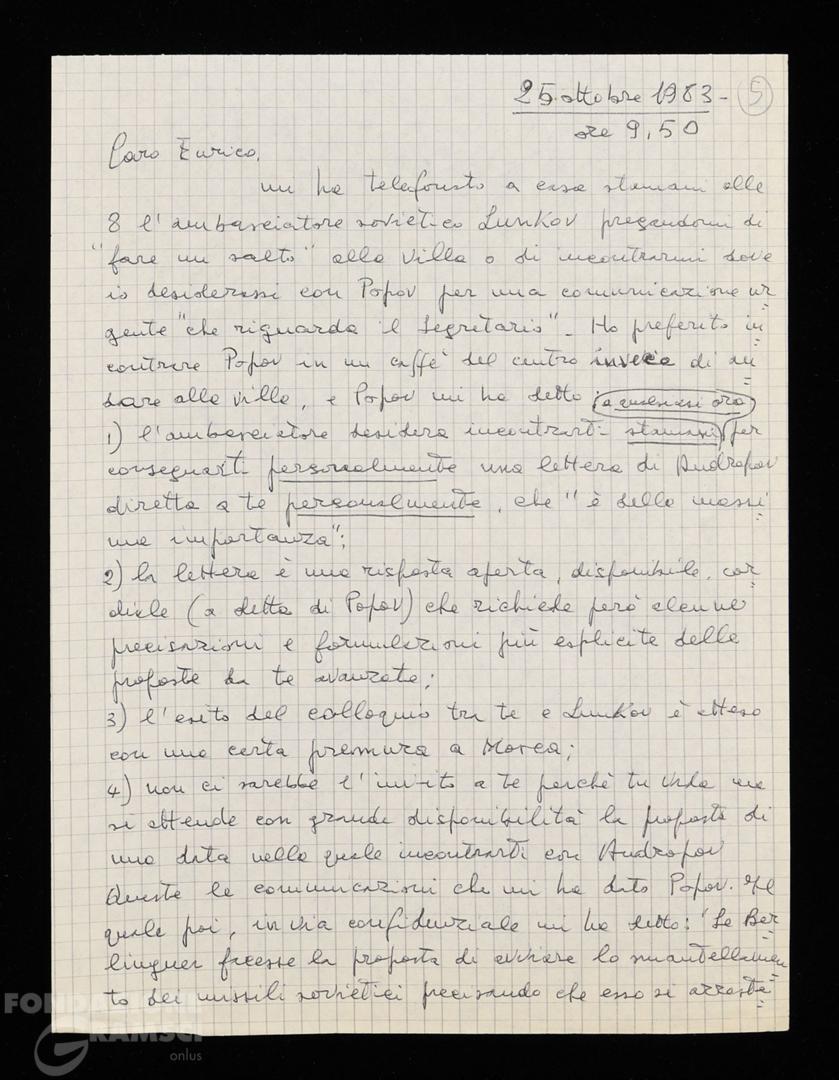 25 ottobre 1983 - 5
ore 9,50
Caro Enrico,
mi ha telefonato a casa stamani alle
8 l'ambasciatore sovietico Lunkov pregandomi di
"fare un salto" alla villa o di incontrarmi dove
io desiderassi con Popov per una comunicazione ur
gente "che riguarda il Segretario". Ho preferito in
contrare Popov in un caffè del centro invece di an
dare alla villa, e Popov mi ha detto (a qualsiasi ora)
1) l'ambasciatore desidera incontrarti stamani per
consegnarti personalmente una lettera di Andropov
diretta a te personalmente, che "è della massi
ma importanza";
2) la lettera è una risposta aperta, disponibile, cor
diale (a detta di Popov) che richiede però alcune
precisazioni e formulazioni più esplicite delle
proposte da te avanzate;
3) l'esito del colloquio tra te e Lunkov è atteso
con una certa premura a Mosca;
4) non ci sarebbe l'invito a te perchè tu vada ma
si attende con grande disponibilità la proposta di
una data nella quale incontrarti con Andropov
Queste le comunicazioni che mi ha dato Popov. Il
quale poi, in via confidenziale mi ha detto: "Se Ber
linguer facesse la proposta di avviare lo smantellamen
to dei missili sovietici precisando che esso si arreste
FONDAZIONE
GRAMSCI
onlus